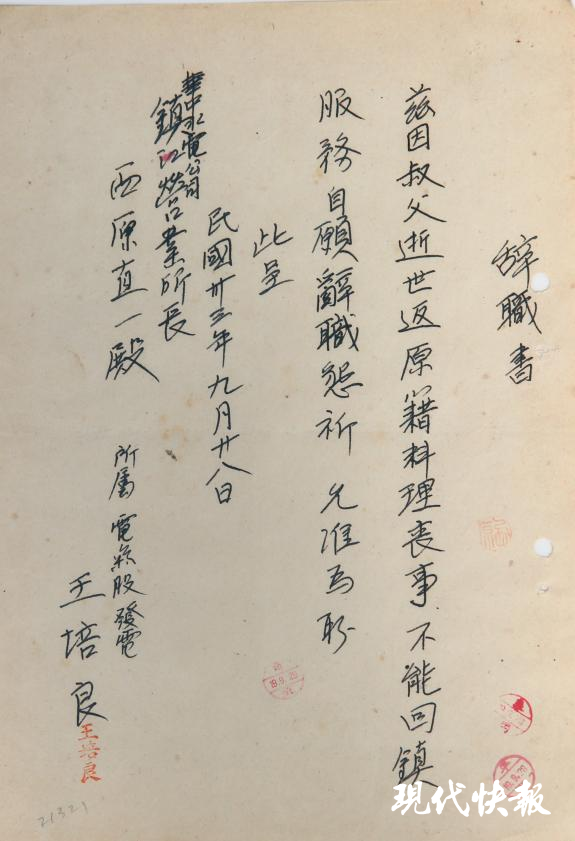 辞職書
茲因叔父逝世返原籍料理喪事不能回鎮
服務自願辭職懇祈 允准為盼
此呈
民國卅三年九月廿八日
華中水電公司
鎮江營業所長
西原直一殿
所属 電気股發電
王培良
王培良
19.9.29
21321
現代快報